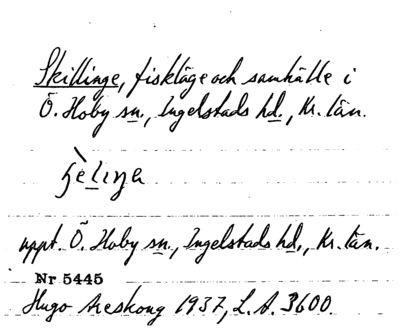 Skillinge, fiskläge och samhälle i
Ö. Hoby sn., Ingelstads hd., Kr. län.
uppt. Ö. Hoby sn., Ingelstads hd., Kr. län.
Nr 5445
Hugo Areskoug 1937, L. A. 3600.